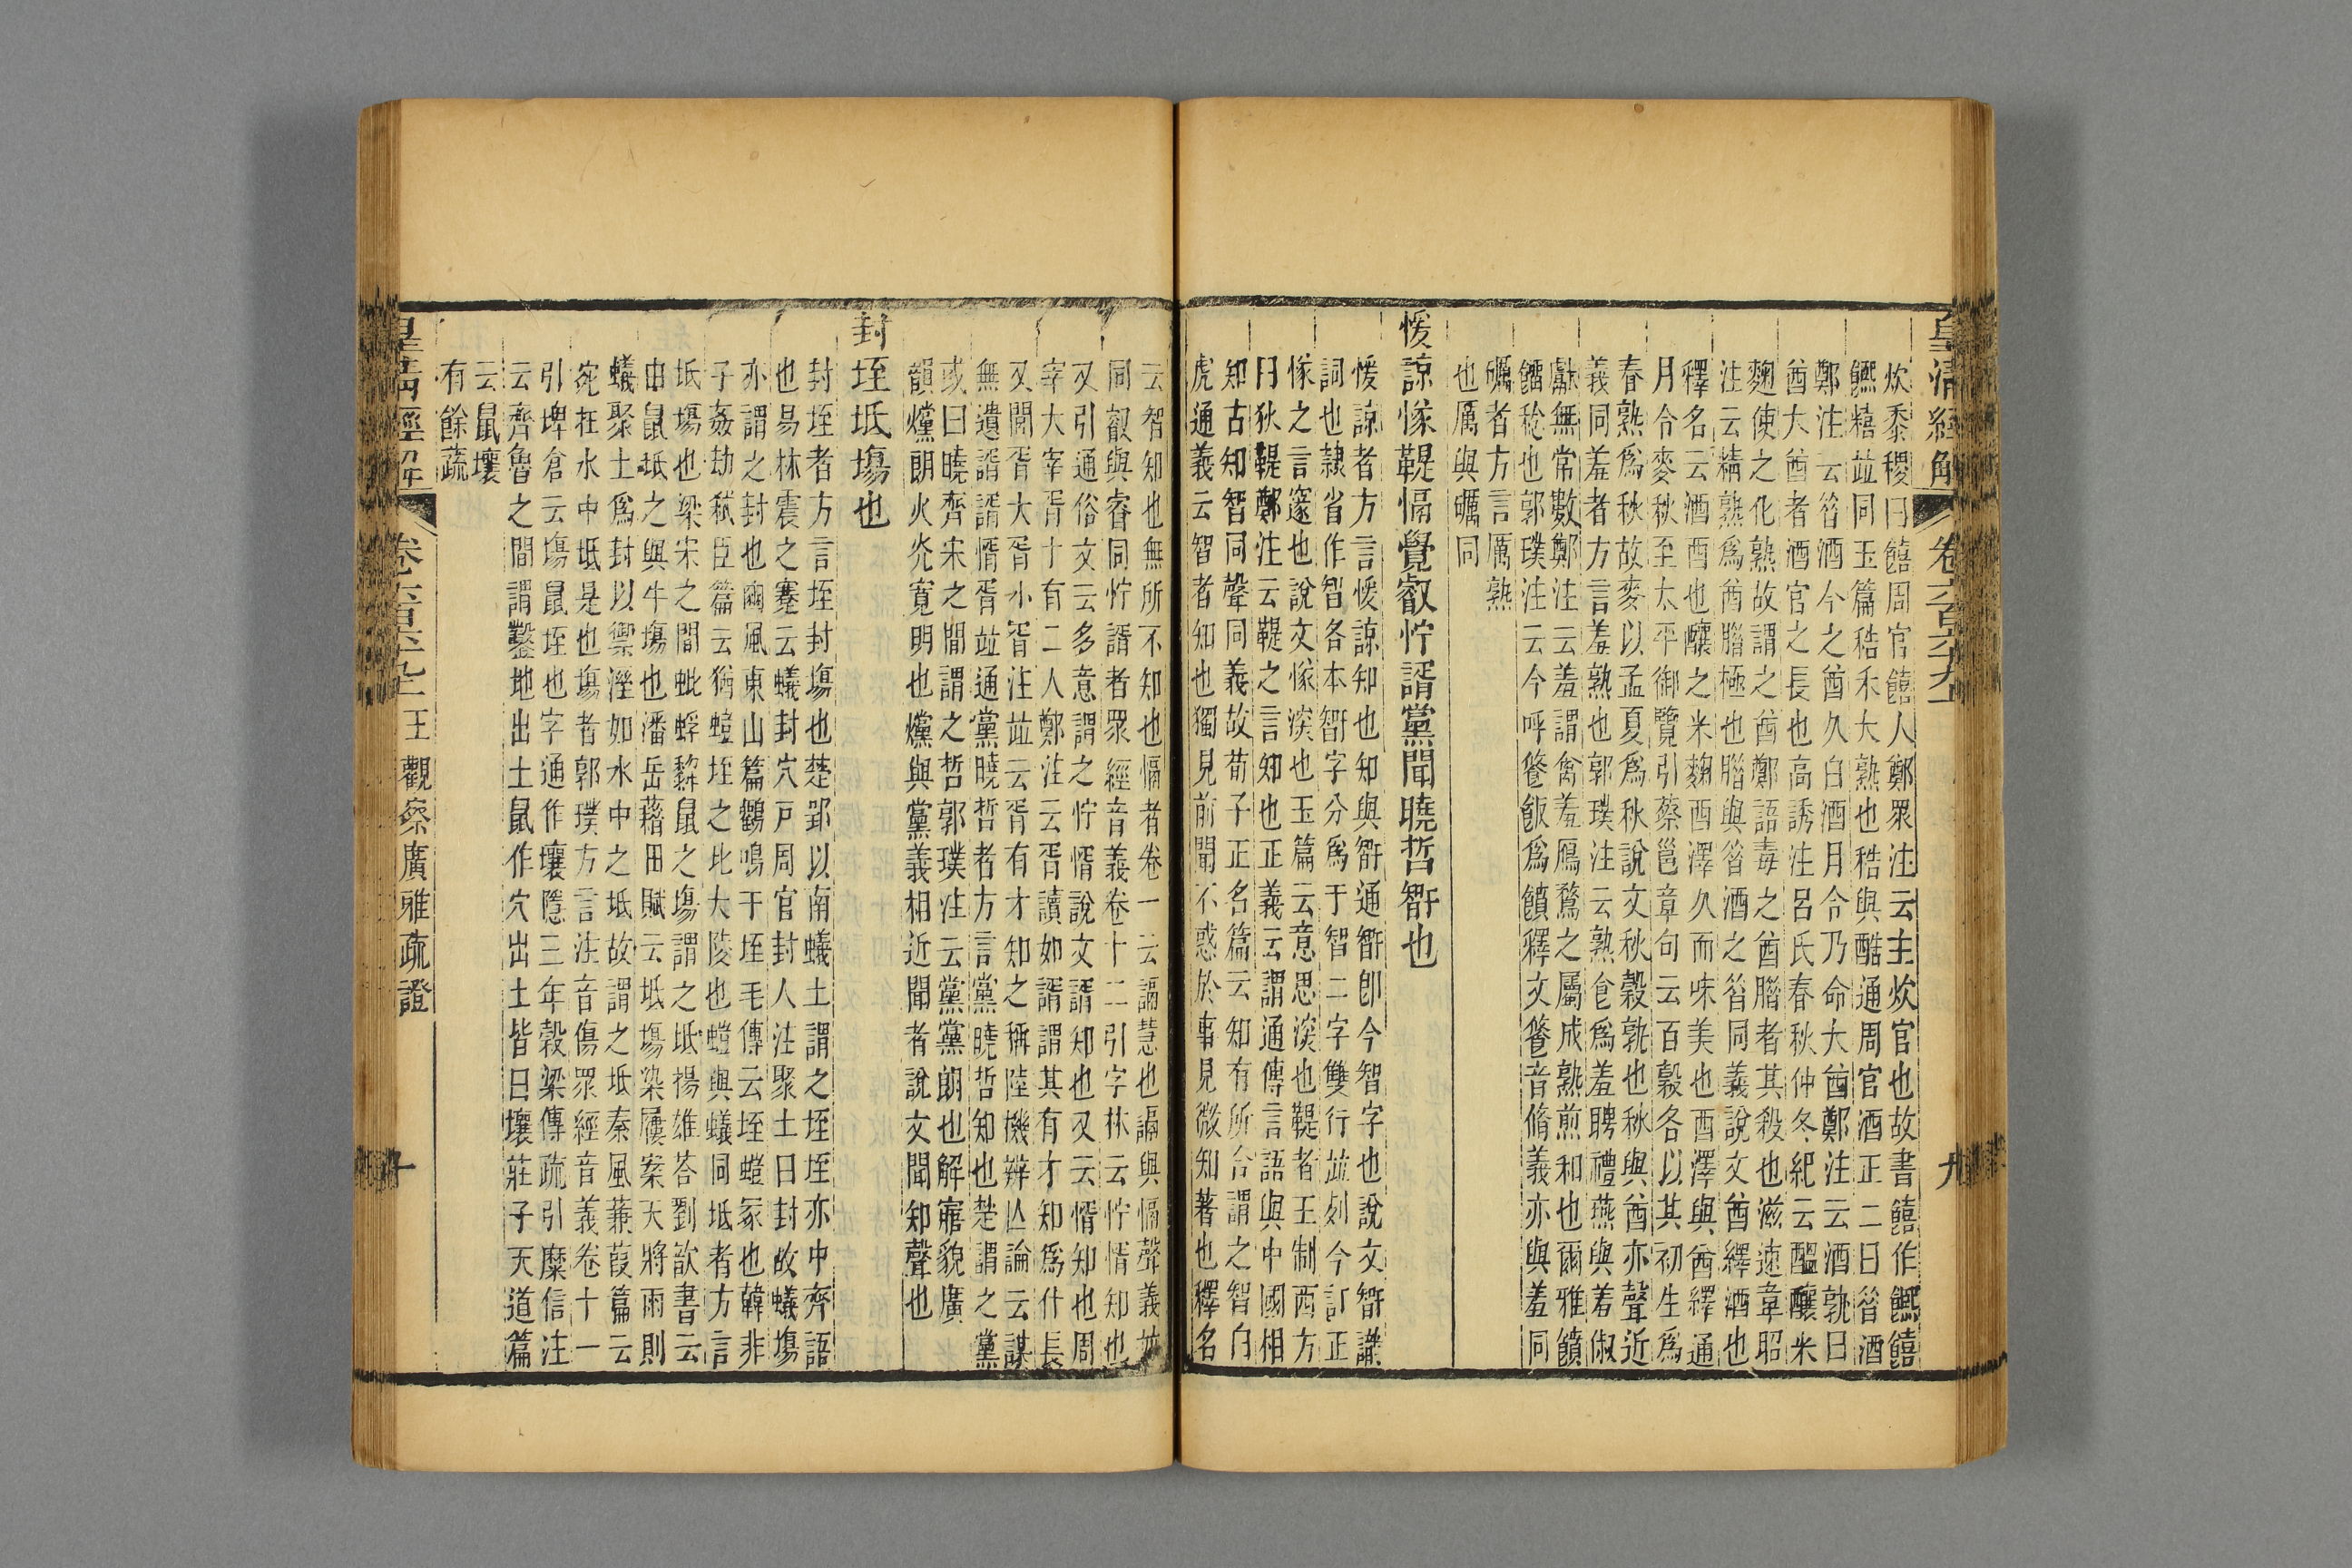 皇清經解 卷六百六十九上 九
炊黍稷曰饎周官饎人鄭眾注云主炊官也故書饎作𩟄饎
𩟄糦竝同玉篇䅵禾大熟也䅵與酷通周官酒正二曰昝酒
鄭注云昝酒今之酋久白酒月令乃命大酋鄭注云酒孰曰
酋大酋者酒官之長也高誘注呂氏春秋仲冬紀云醞釀米
麴使之化熟故謂之酋鄭語毒之酋腊者其殺也滋速韋昭
注云精熟為酋腊極也腊與昝酒之昝同義說文酋繹酒也
釋名云酒酉也釀之米麴酉澤久而味美也酉澤與酋繹通
月令麥秋至太平御覽引蔡邕章句云百穀各以其初生爲
春熟爲秋故麥以孟夏爲秋說文秋穀孰也秋與酋亦聲近
義同羞者方言羞熟也郭璞注云熟食爲羞聘禮燕與羞俶
獻無常數鄭注云羞謂禽羞鴈鶩之屬成熟煎和也爾雅饙
餾稔也郭璞注云今呼䬳飯爲饙釋文䬳音脩義亦與羞同
礪者方言厲熟
也厲與礪同
愋諒㥞鞮愊覺叡㤖諝黨聞曉哲𥏼也
愋諒者方言愋諒知也知與𥏼通𥏼卽今智字也說文𥏼識
詞也隷省作智各本𥏼字分爲于智二字雙行竝列今訂正
㥞之言邃也說文㥞㴱也玉篇云意思㴱也鞮者王制西方
曰狄鞮鄭注云鞮之言知也正義云謂通傳言語與中國相
知古知智同聲同義故荀子正名篇云知有所合謂之智白
虎通義云智者知也獨見前聞不惑於事見微知著也釋名
云智知也無所不知也愊者卷一云諨慧也諨與愊聲義竝
同叡與睿同㤖諝者眾經音義卷十二引字林云㤖惰知也
又引通俗文云多意謂之㤖惰說文諝知也又云惰知也周
宰大宰胥十有二人鄭注云胥讀如諝謂其有才知爲什長
又閒胥大胥小胥注竝云胥有才知之稱陸機辨亾論云謀
無遺諝諝惰胥竝通黨曉哲者方言黨曉哲知也楚謂之黨
或曰曉齊宋之閒謂之哲郭璞注云黨黨朗也解寤貌廣
韻爣朗火灮寬明也爣與黨義相近聞者說文聞知聲也
封垤坻場也
封垤者方言垤封場也楚郢以南蟻土謂之垤垤亦中齊語
也易林震之蹇云蟻封穴戸周官封人注聚土曰封故蟻場
亦謂之封也豳風東山篇鸛鳴于垤毛傳云垤螘冢也韓非
子姦劫弑臣篇云猶螘垤之比大陵也螘與蟻同坻者方言
坻場也梁宋之閒蚍蜉䵩鼠之場謂之坻揚雄荅劉歆書云
由鼠坻之與牛場也潘岳藉田賦云坻場染屨案天將雨則
蟻聚土爲封以禦溼如水中之坻故謂之坻秦風蒹葭篇云
宛在水中坻是也場者郭璞方言注音傷眾經音義卷十一
引埤倉云場鼠垤也字通作壤隱三年穀梁傳疏引糜信注
云齊魯之間謂鑿地出土鼠作穴出土皆曰壤莊子天道篇
云鼠壤
有餘蔬
皇清經解 卷六百六十九上 王觀察廣雅疏證 十